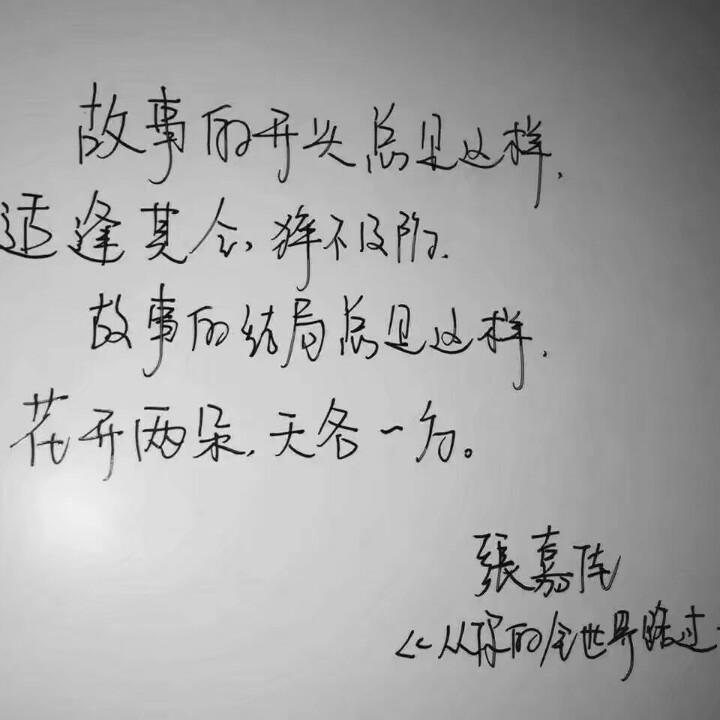 故事的开头总是这样,
适逢其会,猝不及防.
故事的结局总是这样,
花开两朵,天各一方。
張嘉佳
<<从你的全世界路过